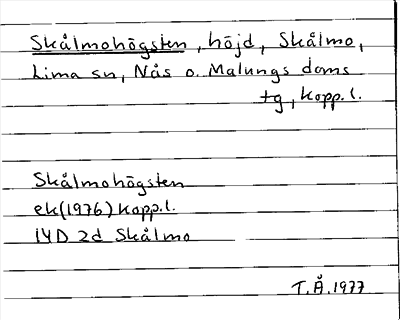 Skålmohögsten, höjd, Skålmo,
Lima sn, Nås o. Malungs doms
tg, Kopp. l.
Skålmohögsten
ek (1976) Kopp. l.
14D 2d Skålmo
T.Å. 1977